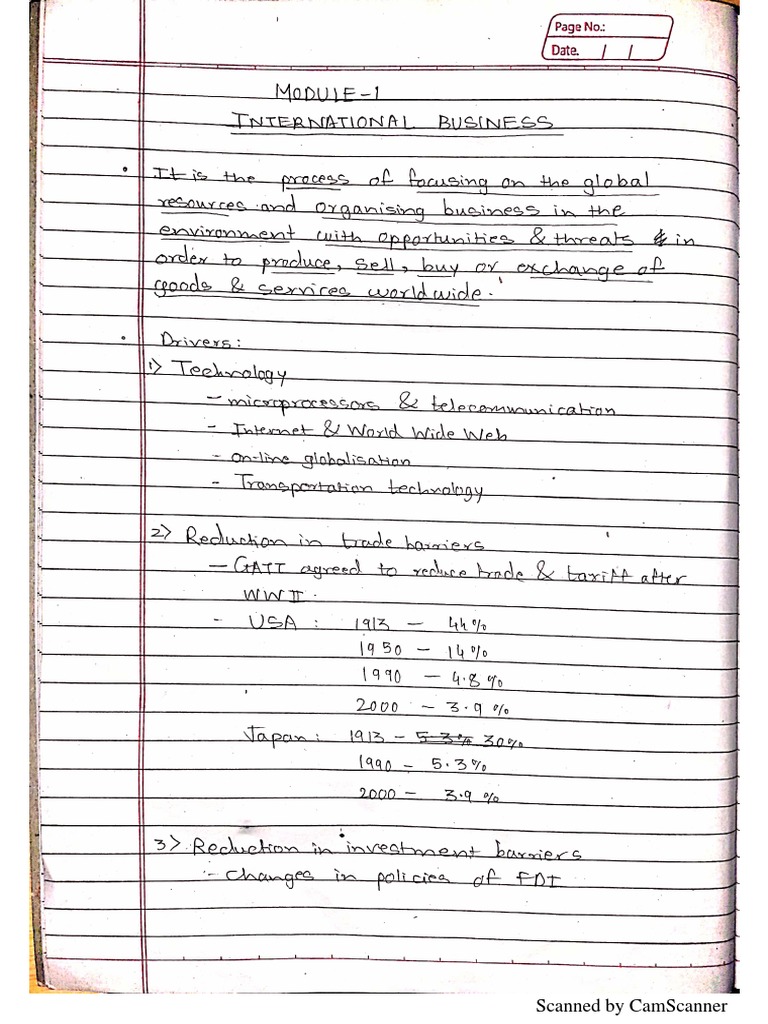 Page No.:
Date. / /
MODULE-1
INTERNATIONAL BUSINESS
• It is the process of focusing on the global
resources and organising business in the
environment with opportunities & threats & in
order to produce, sell, buy or exchange of
goods & services worldwide.
• Drivers:
1) Technology
- microprocessors & telecommunication
- Internet & World Wide Web
- on-line globalisation
- Transportation technology
2) Reduction in trade barriers
- GATT agreed to reduce trade & tariff after
WW II.
- USA : 1913 - 44%
1950 - 14%
1990 - 4.8%
2000 - 3.9%
Japan: 1913 - 5.3% 30%
1990 - 5.3%
2000 - 3.9%
3) Reduction in investment barriers
- changes in policies of FDI
Scanned by CamScanner